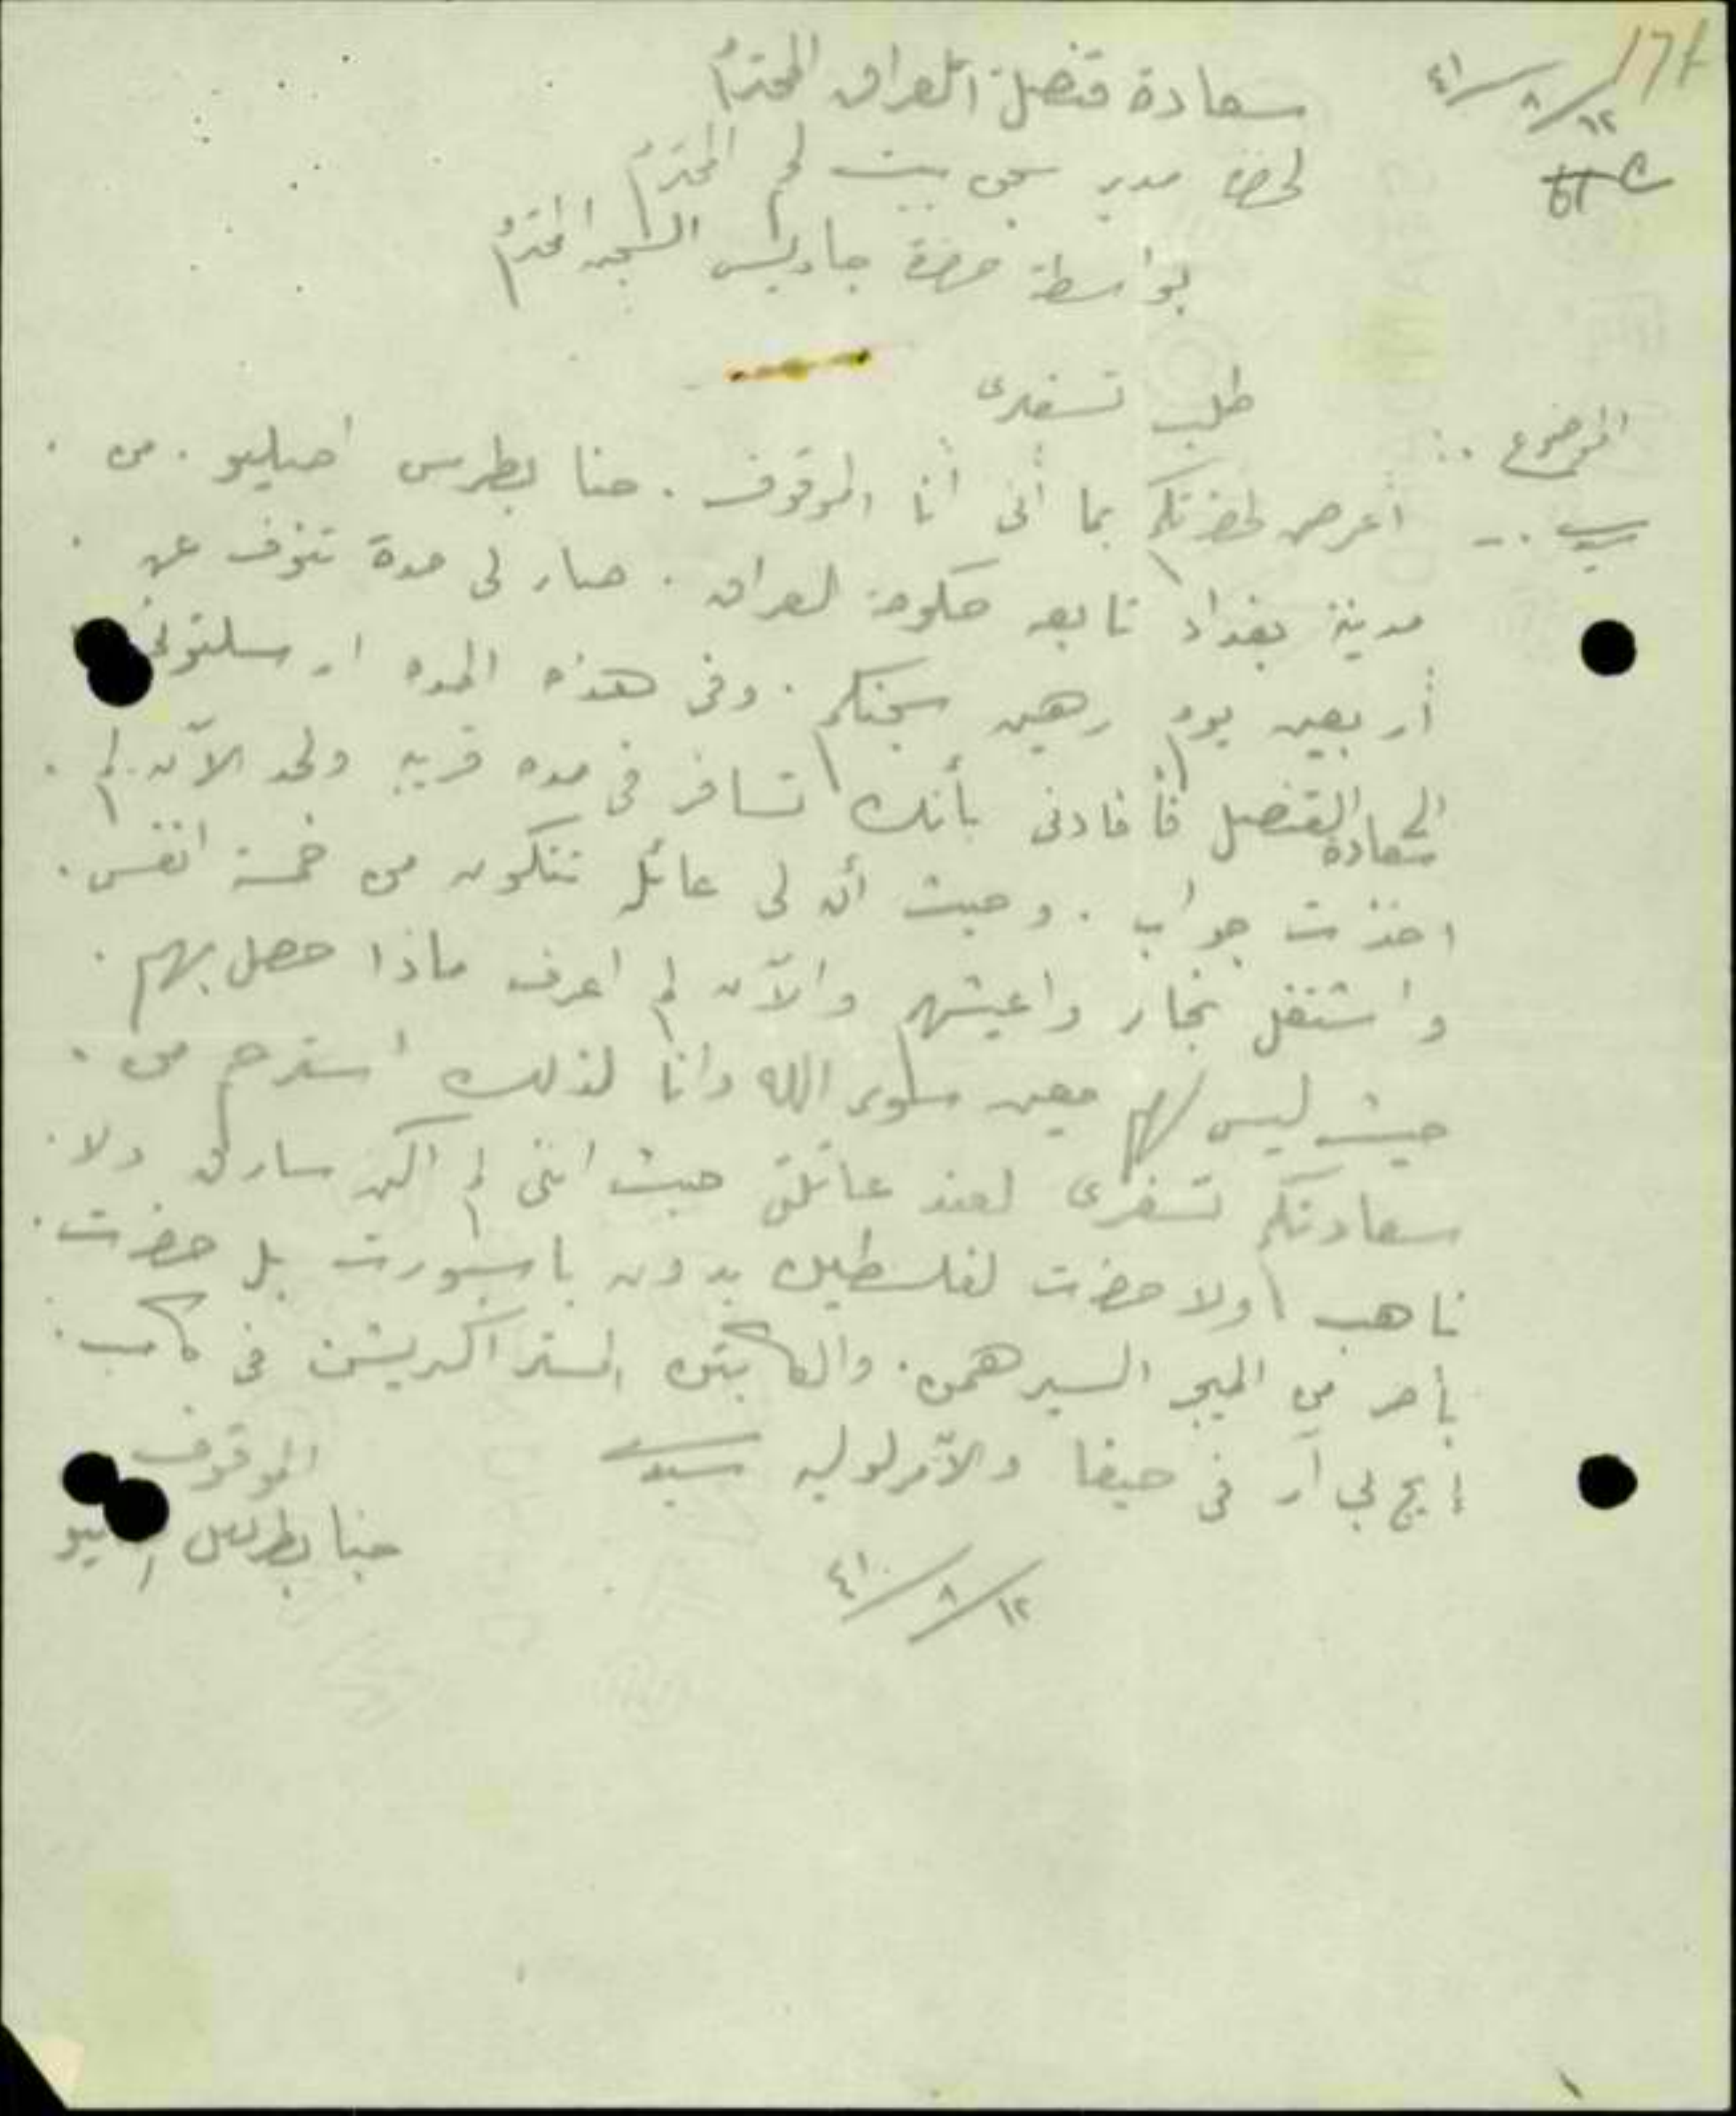 17f
١٢/٨/٤١
سعادة قنصل العراق المحترم
لحضرة مدير سجن بيت لحم المحترم
بواسطة حضرة جاويش السجن المحترم
الموضوع :. طلب تسفيرى
سيدى .. أعرض لحضرتكم بما أنى أنا الموقوف . حنا بطرس اصيليو . من .
مدينة بغداد تابعه حكومة العراق . صار لى مدة تنوف عن .
أربعين يوم رهين سجنكم . وفى هذه المده ارسلتونى
الى سعادة القنصل فأفادنى بأنك تسافر فى مده قريبه ولحد الآن لم .
اخذت جواب . وحيث أن لى عائله تتكون من خمسة انفس .
واشتغل نجار واعيشهم والآن لم اعرف ماذا حصل بهم .
حيث ليس لهم معين سوى الله وانا لذلك استرحم من .
سعادتكم تسفيرى لعند عائلتى حيث اننى لم اكن سارق ولا .
ناهب ولا حضرت لفلسطين بدون باسبورت بل حضرت .
بأمر من الميجر السير همن . والكابتن المستر اكريشن فى كامب .
إيج بي آر فى حيفا والأمر لوليه سيدى
الموقوف
حنا بطرس
١٢/٨/٤١